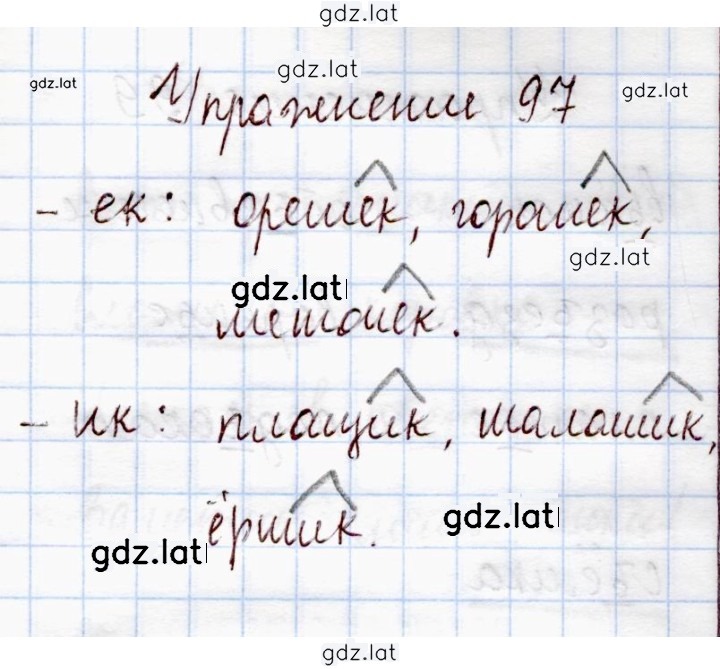 gdz.lat
gdz.lat
gdz.lat
gdz.lat
Упражнение 97
- ек: орешек, горошек,
gdz.lat
gdz.lat
мешочек.
- ик: плащик, шалашик,
ёршик.
gdz.lat
gdz.lat
gdz.lat